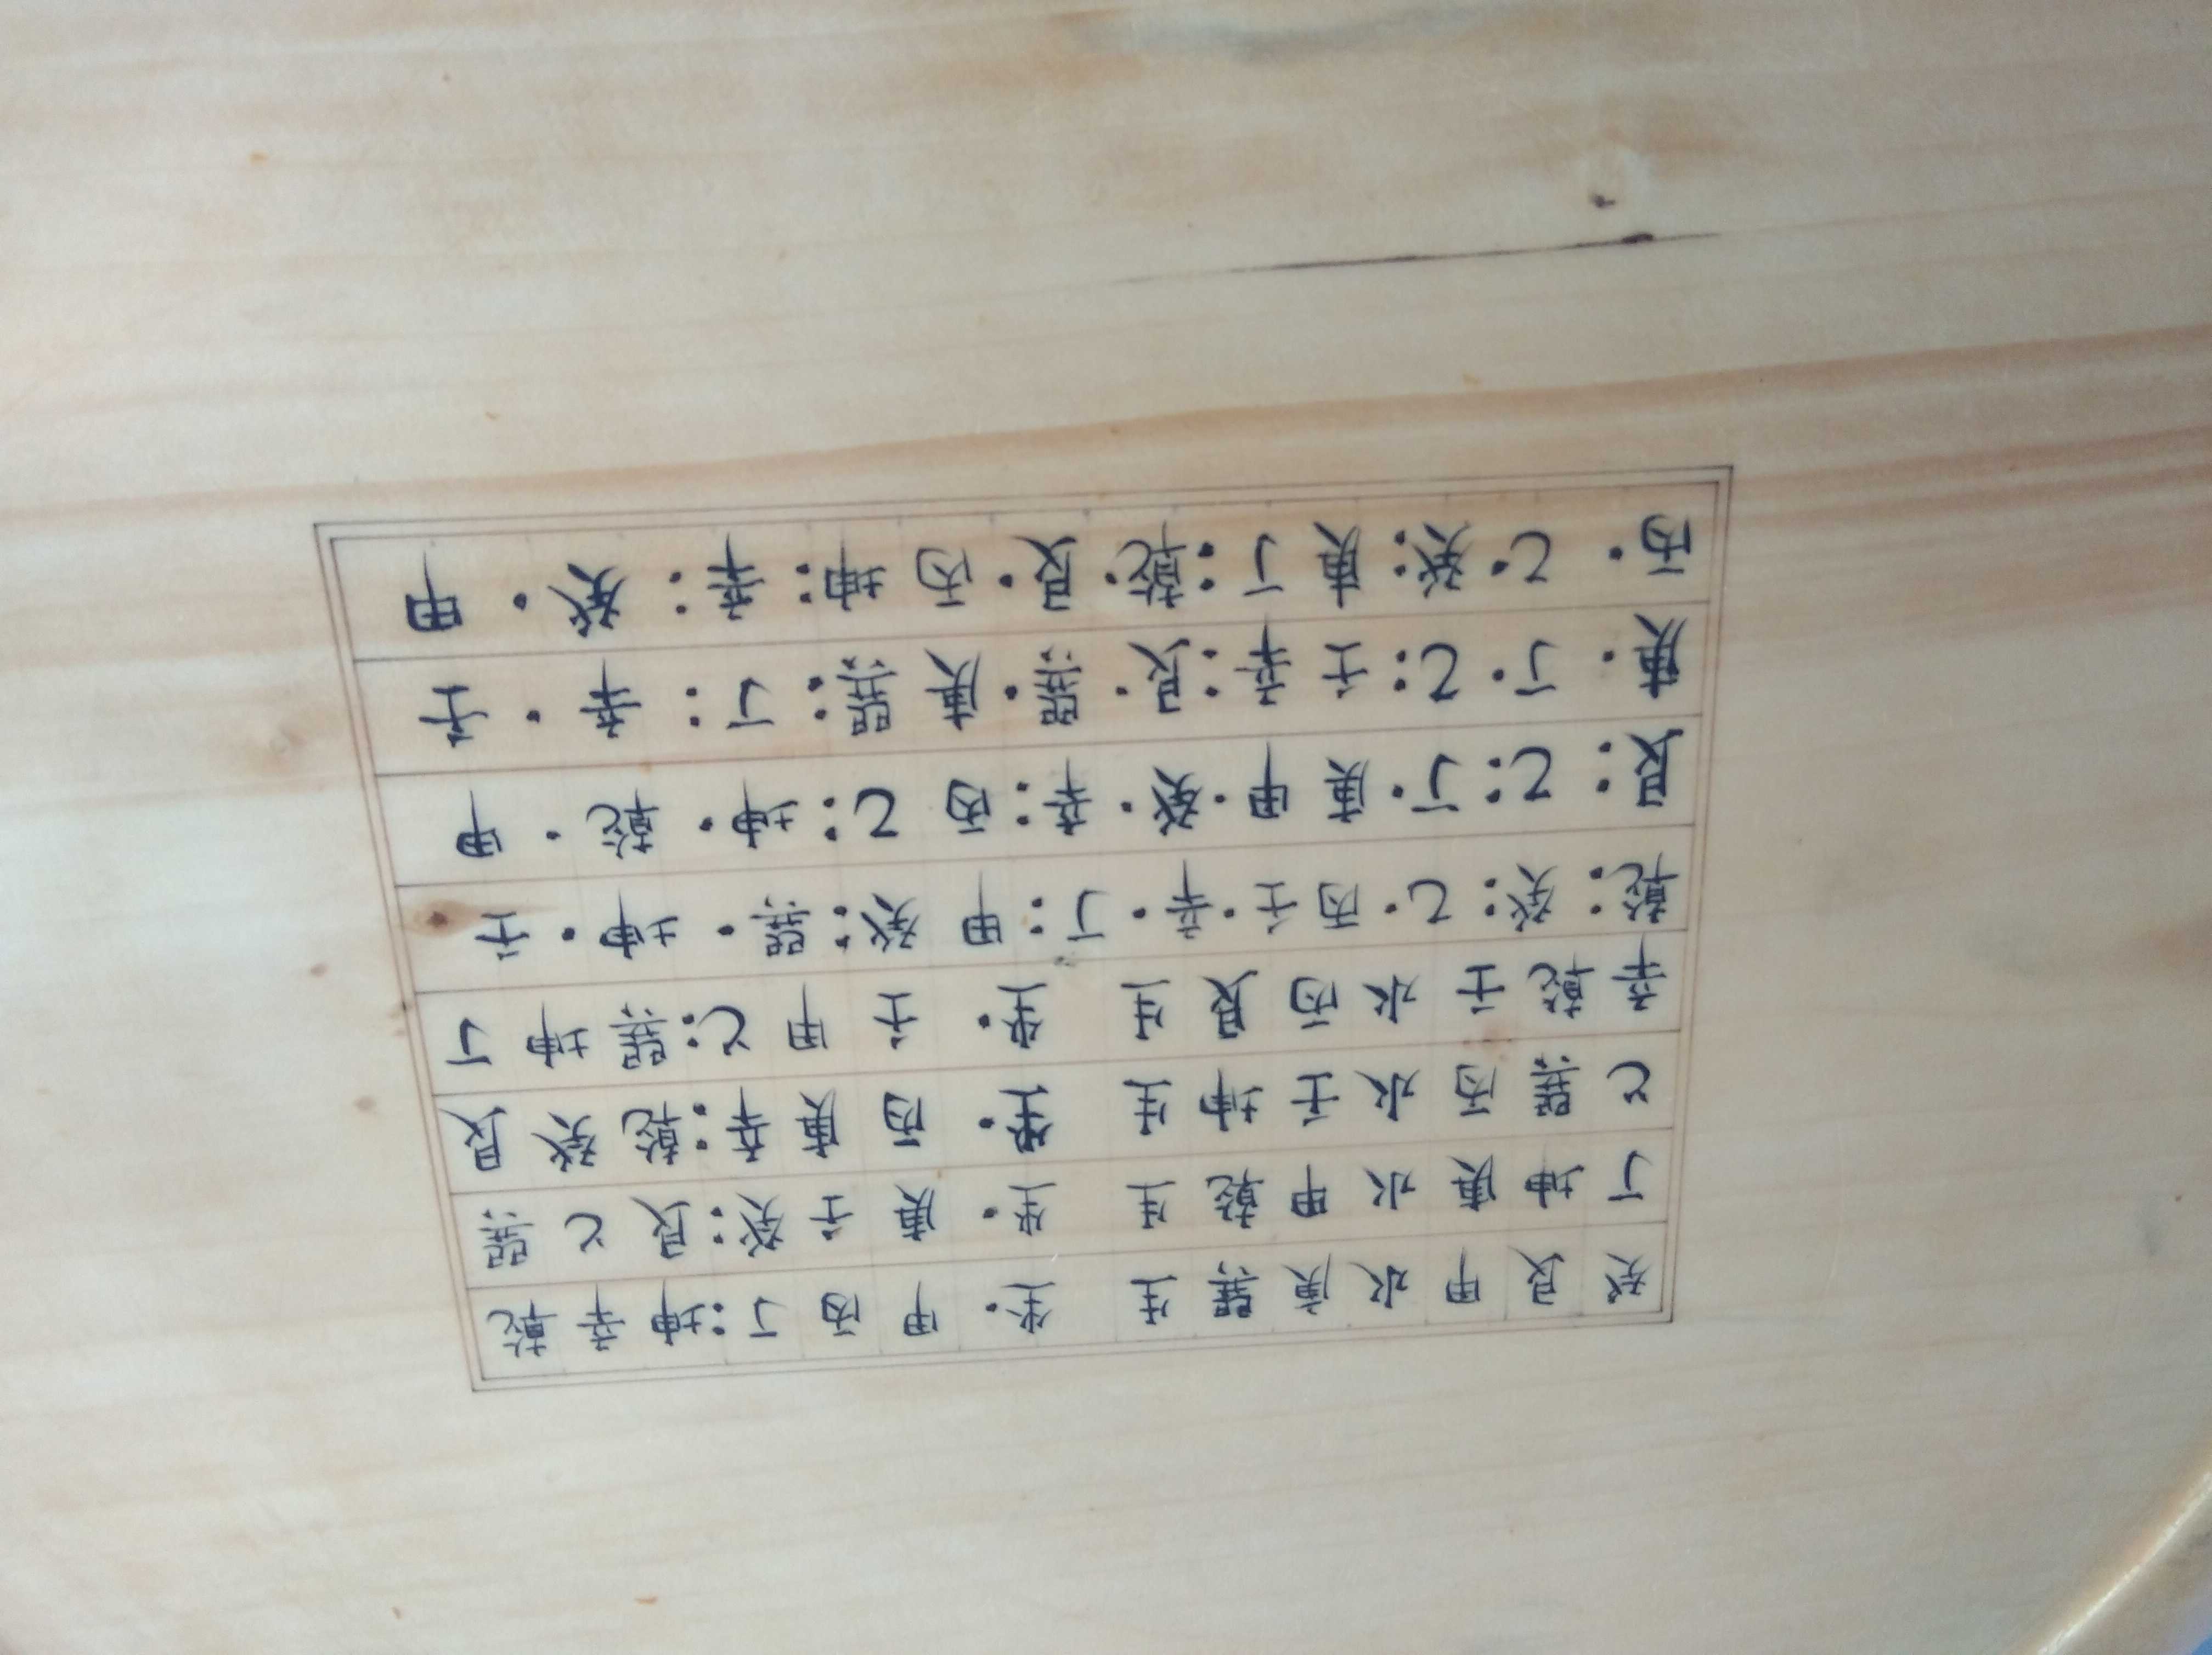 癸 艮 甲 水 庚 巽 生 坐· 甲 丙 丁:坤 辛 乾
丁 坤 庚 水 甲 乾 生 坐· 庚 壬 癸:艮 乙 巽
乙 巽 丙 水 壬 坤 生 坐· 丙 庚 辛:乾 癸 艮
辛 乾 壬 水 丙 艮 生 坐· 壬 甲 乙:巽 坤 丁
乾:癸:乙·丙 壬·辛·丁:甲 癸:巽·坤·壬
艮:乙:丁·庚 甲·癸·辛:丙 乙:坤·乾·甲
庚·丁·乙:壬 辛:艮·巽·庚 巽:丁:辛·壬
丙·乙·癸:庚 丁:乾·艮·丙 坤:辛:癸·甲